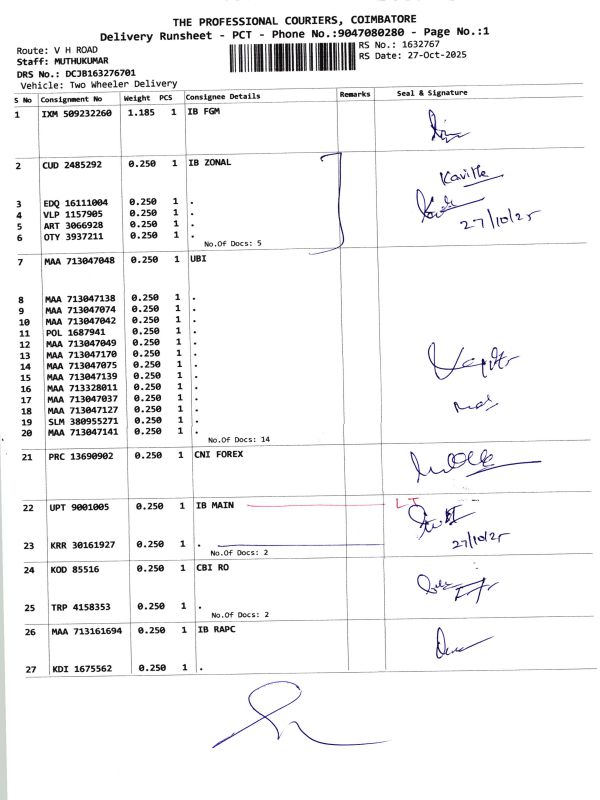 THE PROFESSIONAL COURIERS, COIMBATORE
Delivery Runsheet - PCT - Phone No.:9047080280 - Page No.:1
Route: V H ROAD
RS No.: 1632767
Staff: MUTHUKUMAR
RS Date: 27-Oct-2025
DRS No.: DCJB163276701
Vehicle: Two Wheeler Delivery
S No Consignment No Weight PCS Consignee Details Remarks Seal & Signature
1 IXM 509232260 1.185 1 IB FGM
2 CUD 2485292 0.250 1 IB ZONAL
Kavitha
3 EDQ 16111004 0.250 1 .
4 VLP 1157905 0.250 1 .
5 ART 3066928 0.250 1 .
27/10/25
6 OTY 3937211 0.250 1 .
No.Of Docs: 5
7 MAA 713047048 0.250 1 UBI
8 MAA 713047138 0.250 1 .
9 MAA 713047074 0.250 1 .
10 MAA 713047042 0.250 1 .
11 POL 1687941 0.250 1 .
12 MAA 713047049 0.250 1 .
13 MAA 713047170 0.250 1 .
14 MAA 713047075 0.250 1 .
15 MAA 713047139 0.250 1 .
16 MAA 713328011 0.250 1 .
17 MAA 713047037 0.250 1 .
18 MAA 713047127 0.250 1 .
19 SLM 380955271 0.250 1 .
20 MAA 713047141 0.250 1 .
No.Of Docs: 14
21 PRC 13690902 0.250 1 CNI FOREX
22 UPT 9001005 0.250 1 IB MAIN
27/10/25
23 KRR 30161927 0.250 1 .
No.Of Docs: 2
24 KOD 85516 0.250 1 CBI RO
25 TRP 4158353 0.250 1 .
No.Of Docs: 2
26 MAA 713161694 0.250 1 IB RAPC
27 KDI 1675562 0.250 1 .